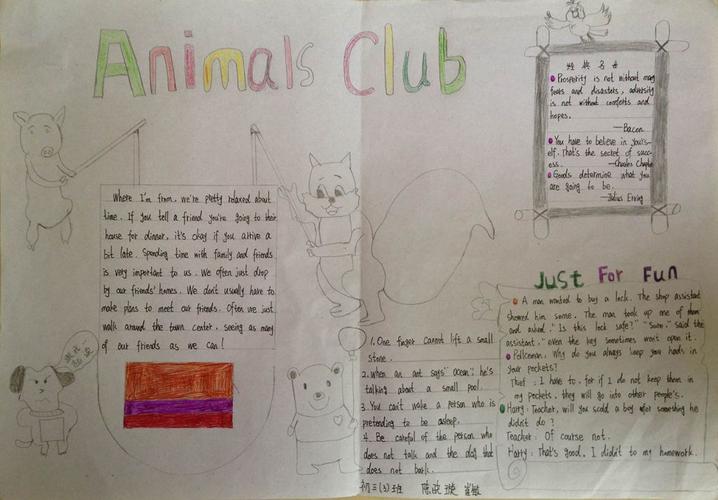 Animals Club
名
Prosperity is not without many
fears and disasters, adversity
is not without comforts and
hopes.
—Bacon
You have to believe in yours-
elf. That's the secret of succ-
ess. —Charles Chaplin
Goods determine what you
are going to be.
—Julius Erving
Where I'm from, we're pretty relaxed about
time. If you tell a friend you're going to their
house for dinner, it's okay if you arrive a
bit late. Spending time with family and friends
is very important to us. We often just drop
by our friends' homes. We don't usually have to
make plans to meet our friends. Often we just
walk around the town center, seeing as many
of our friends as we can!
1. One finger cannot lift a small
stone.
2. When an ant says "ocean", he's
talking about a small pool.
3. You can't wake a person who is
pretending to be asleep.
4. Be careful of the person who
does not talk and the dog that
does not bark.
Just For Fun
A man wanted to buy a lock. The shop assistant
showed him some. The man took up one of them
and asked, "Is this lock safe?" "Sure," said the
assistant, "even the key sometimes won't open it.
Policeman: Why do you always keep you hands in
your pockets?
Thief: I have to, for if I do not keep them in
my pockets, they will go into other people's.
Harry: Teacher, will you scold a boy for something he
didn't do?
Teacher: Of course not.
Harry: That's good, I didn't do my homework.
初三(3)班 陈